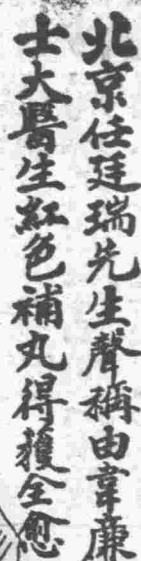 北京任廷瑞先生聲稱由韋廉
士大醫生紅色補丸得獲全愈